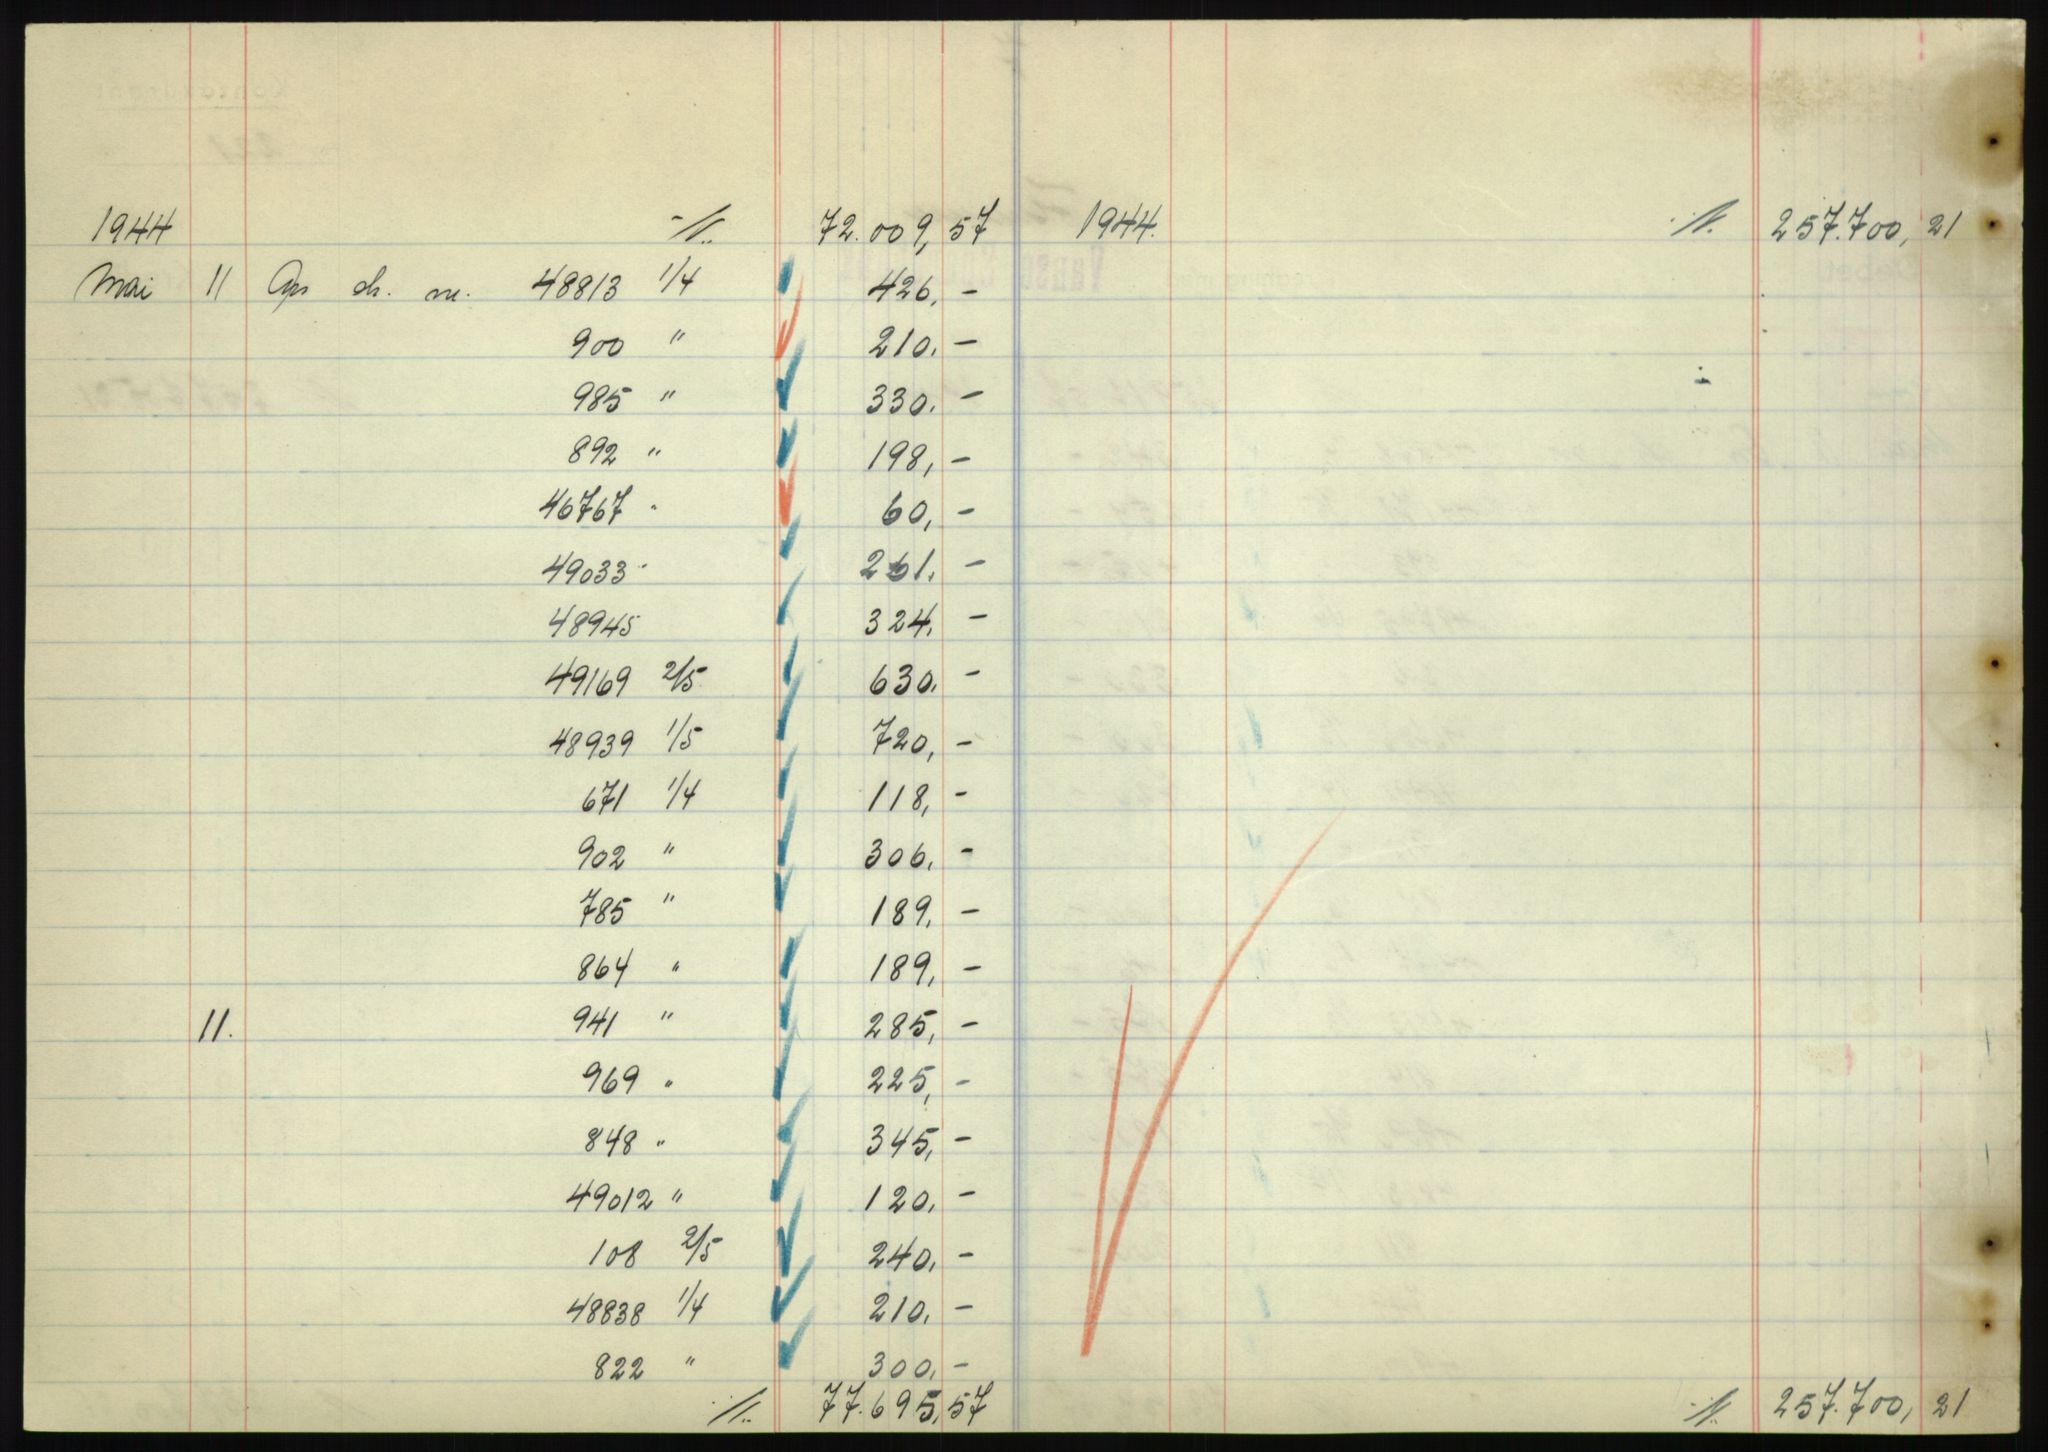 1944 ./. 72.009,57
Mai 11 Ops ch. nr. 48813 1/4 426,-
900 " 210,-
985 " 330,-
892 " 198,-
46767 " 60,-
49033 " 261,-
48945 324,-
49169 2/5 630,-
48939 1/5 720,-
671 1/4 118,-
902 " 306,-
785 " 189,-
864 " 189,-
11. 941 " 285,-
969 " 225,-
848 " 345,-
49012 " 120,-
108 2/5 240,-
48838 1/4 210,-
822 " 300,-
./. 77.695,57
1944. ./. 257.700,21
./. 257.700,21